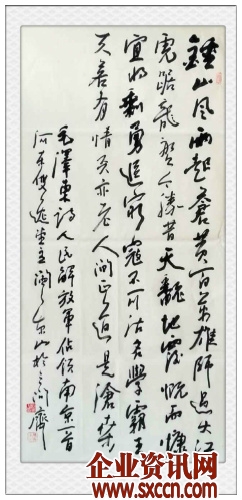 鍾山風雨起蒼黄百萬雄師過大江
虎踞龍盤今勝昔天翻地覆慨而慷
宜將剩勇追窮寇不可沽名學霸王
天若有情天亦老人間正道是滄桑
毛澤東詩人民解放軍佔領南京一首
河東堂主閻東山於三間齋
企业资讯网
www.sxccn.com